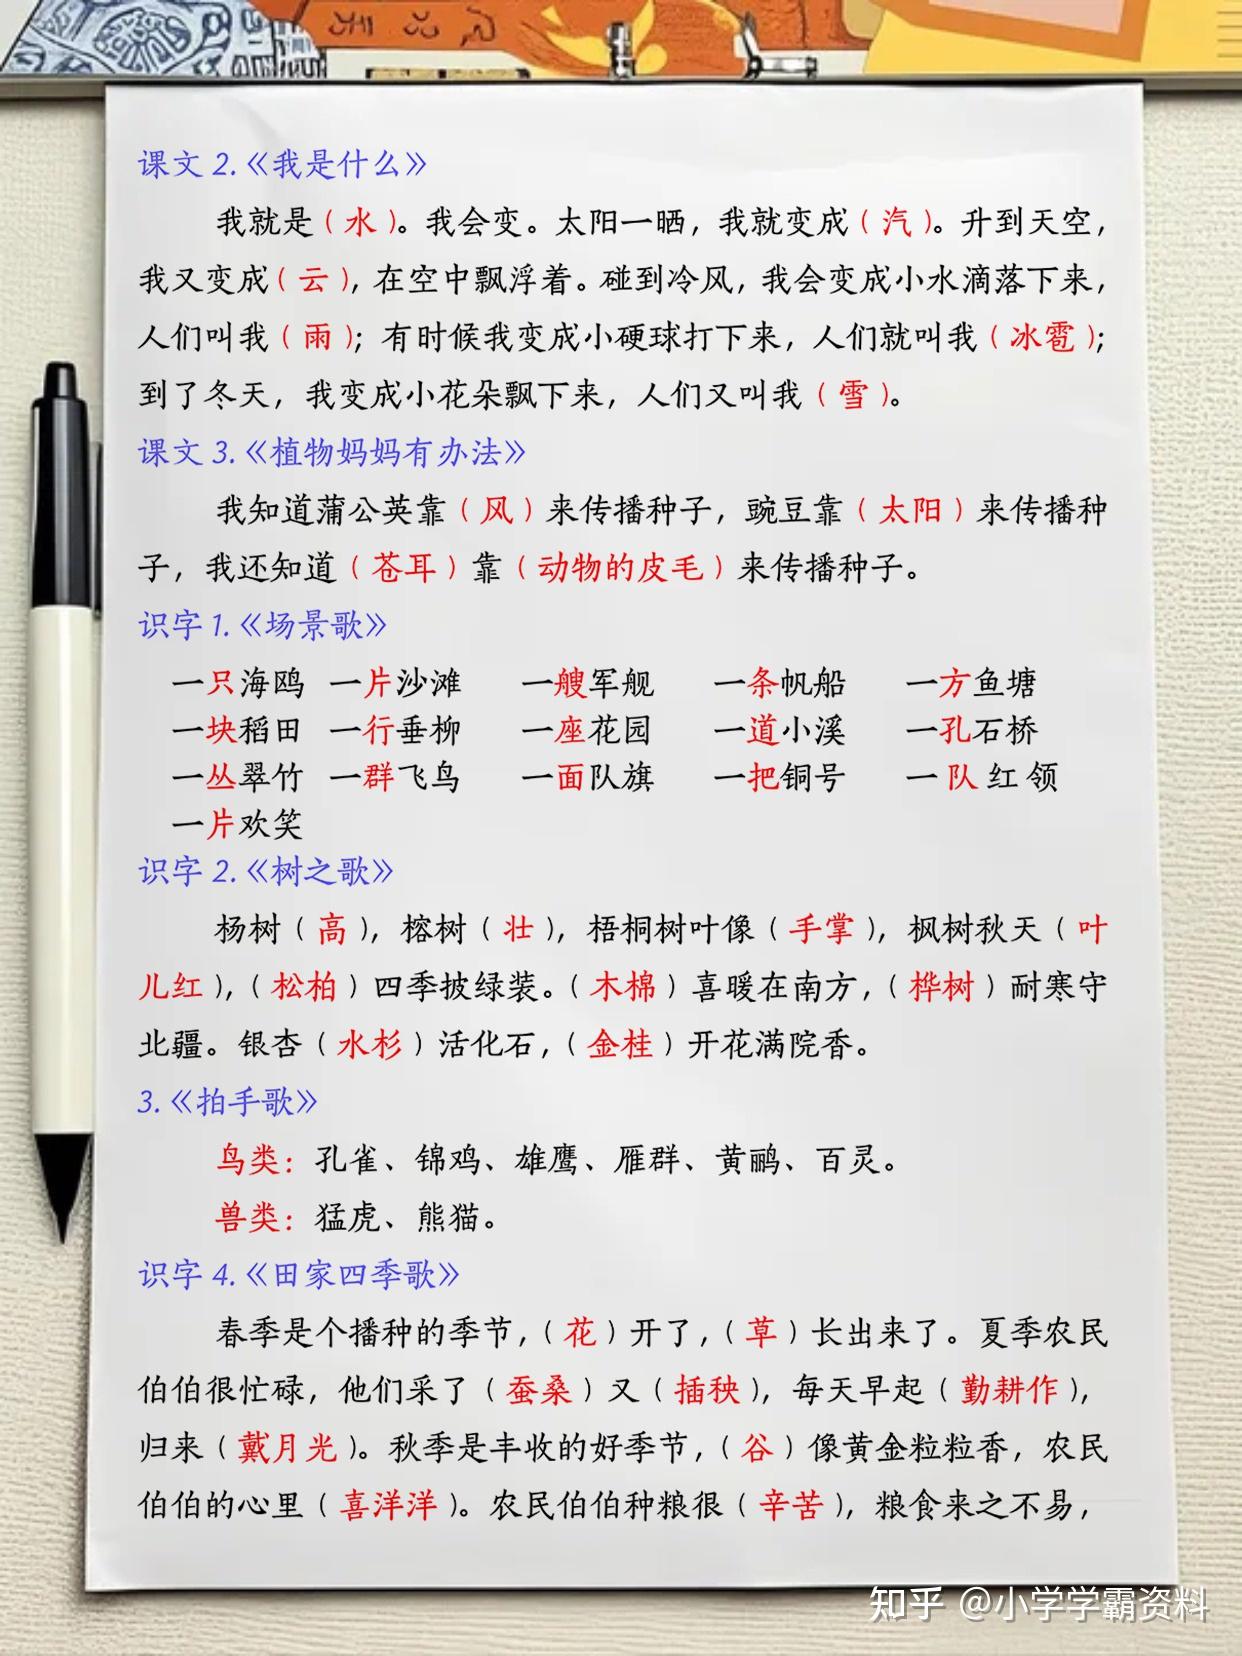 课文 2.《我是什么》
我就是（水）。我会变。太阳一晒，我就变成（汽）。升到天空，
我又变成（云），在空中飘浮着。碰到冷风，我会变成小水滴落下来，
人们叫我（雨）；有时候我变成小硬球打下来，人们就叫我（冰雹）；
到了冬天，我变成小花朵飘下来，人们又叫我（雪）。
课文 3.《植物妈妈有办法》
我知道蒲公英靠（风）来传播种子，豌豆靠（太阳）来传播种
子，我还知道（苍耳）靠（动物的皮毛）来传播种子。
识字 1.《场景歌》
一只海鸥 一片沙滩 一艘军舰 一条帆船 一方鱼塘
一块稻田 一行垂柳 一座花园 一道小溪 一孔石桥
一丛翠竹 一群飞鸟 一面队旗 一把铜号 一队红领
一片欢笑
识字 2.《树之歌》
杨树（高），榕树（壮），梧桐树叶像（手掌），枫树秋天（叶
儿红），（松柏）四季披绿装。（木棉）喜暖在南方，（桦树）耐寒守
北疆。银杏（水杉）活化石，（金桂）开花满院香。
3.《拍手歌》
鸟类：孔雀、锦鸡、雄鹰、雁群、黄鹂、百灵。
兽类：猛虎、熊猫。
识字 4.《田家四季歌》
春季是个播种的季节，（花）开了，（草）长出来了。夏季农民
伯伯很忙碌，他们采了（蚕桑）又（插秧），每天早起（勤耕作），
归来（戴月光）。秋季是丰收的好季节，（谷）像黄金粒粒香，农民
伯伯的心里（喜洋洋）。农民伯伯种粮很（辛苦），粮食来之不易，
知乎 @小学学霸资料